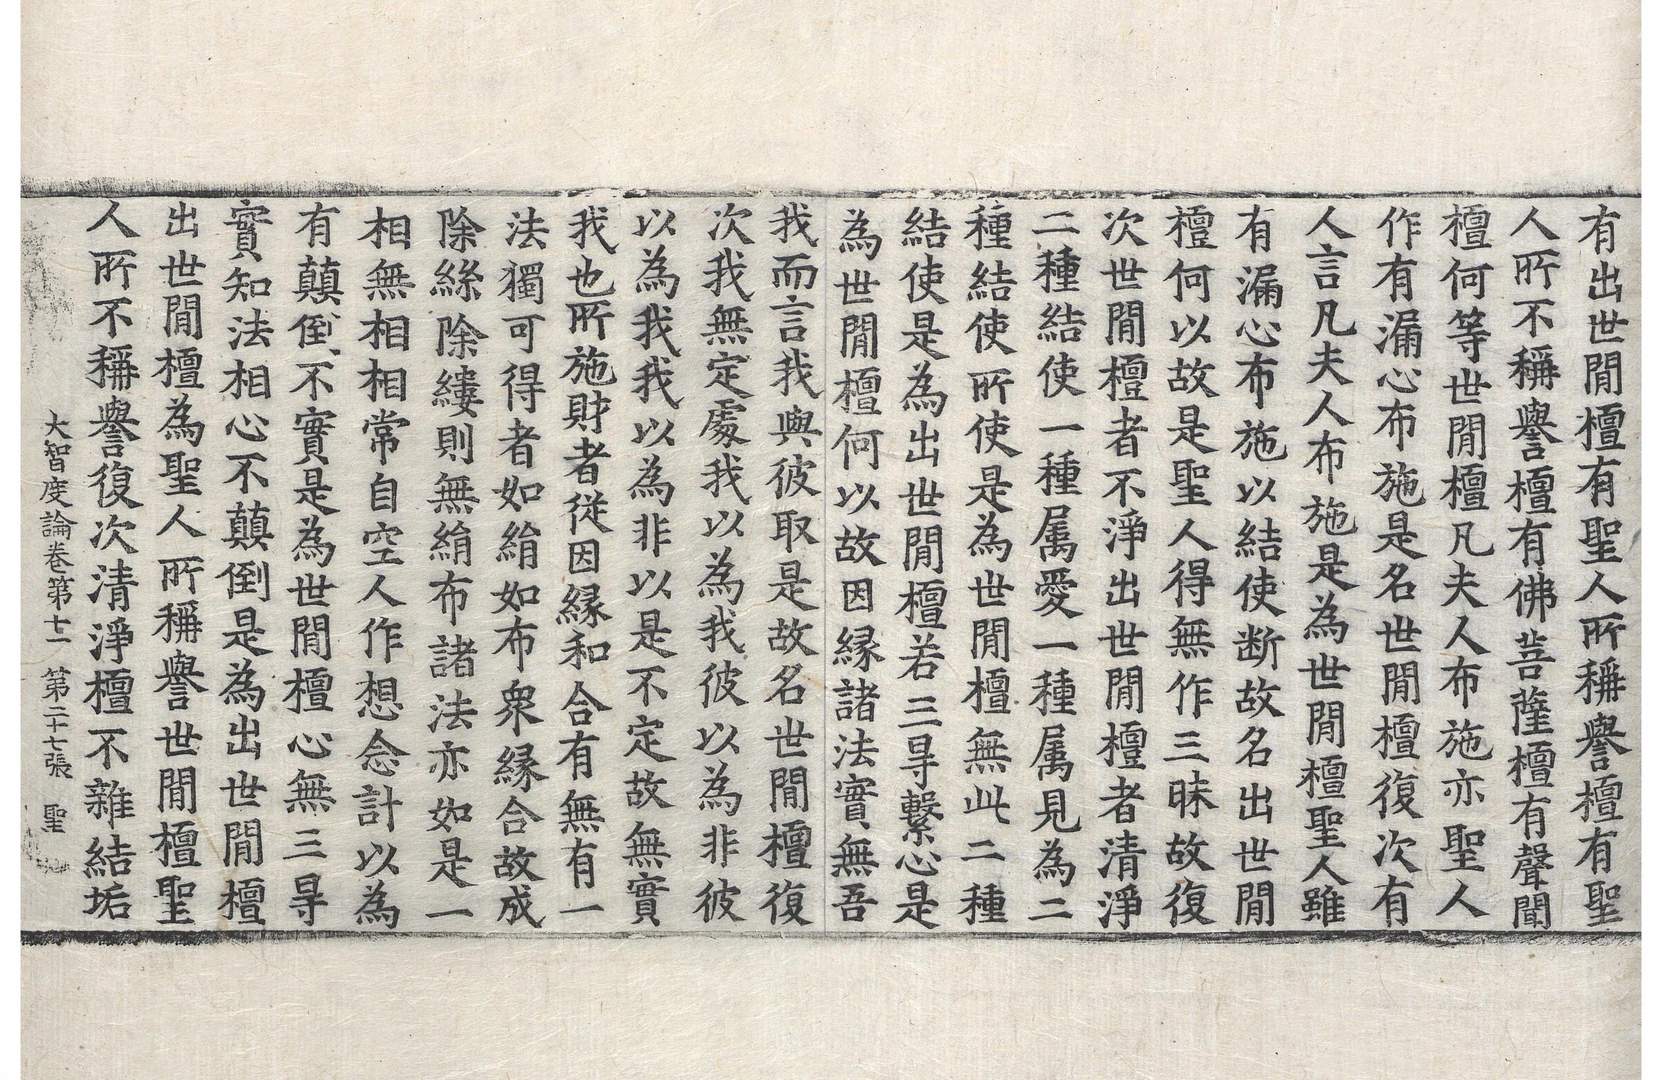 有出世閒檀有聖人所稱譽檀有聖
人所不稱譽檀有佛菩薩檀有聲聞
檀何等世閒檀凡夫人布施亦聖人
作有漏心布施是名世閒檀復次有
人言凡夫人布施是為世閒檀聖人雖
有漏心布施以結使断故名出世閒
檀何以故是聖人得無作三昧故復
次世閒檀者不淨出世閒檀者清淨
二種結使一種属愛一種属見為二
種結使所使是為世閒檀無此二種
結使是為出世閒檀若三㝵繫心是
為世閒檀何以故因縁諸法實無吾
我而言我與彼取是故名世閒檀復
次我無定處我以為我彼以為非彼
以為我我以為非以是不定故無實
我也所施財者從因縁和合有無有一
法獨可得者如絹如布衆縁合故成
除絲除縷則無絹布諸法亦如是一
相無相相常自空人作想念計以為
有顛倒不實是為世閒檀心無三㝵
實知法相心不顛倒是為出世閒檀
出世閒檀為聖人所稱譽世閒檀聖
人所不稱譽復次清淨檀不雜結垢
大智度論卷第十一 第二十七張 聖